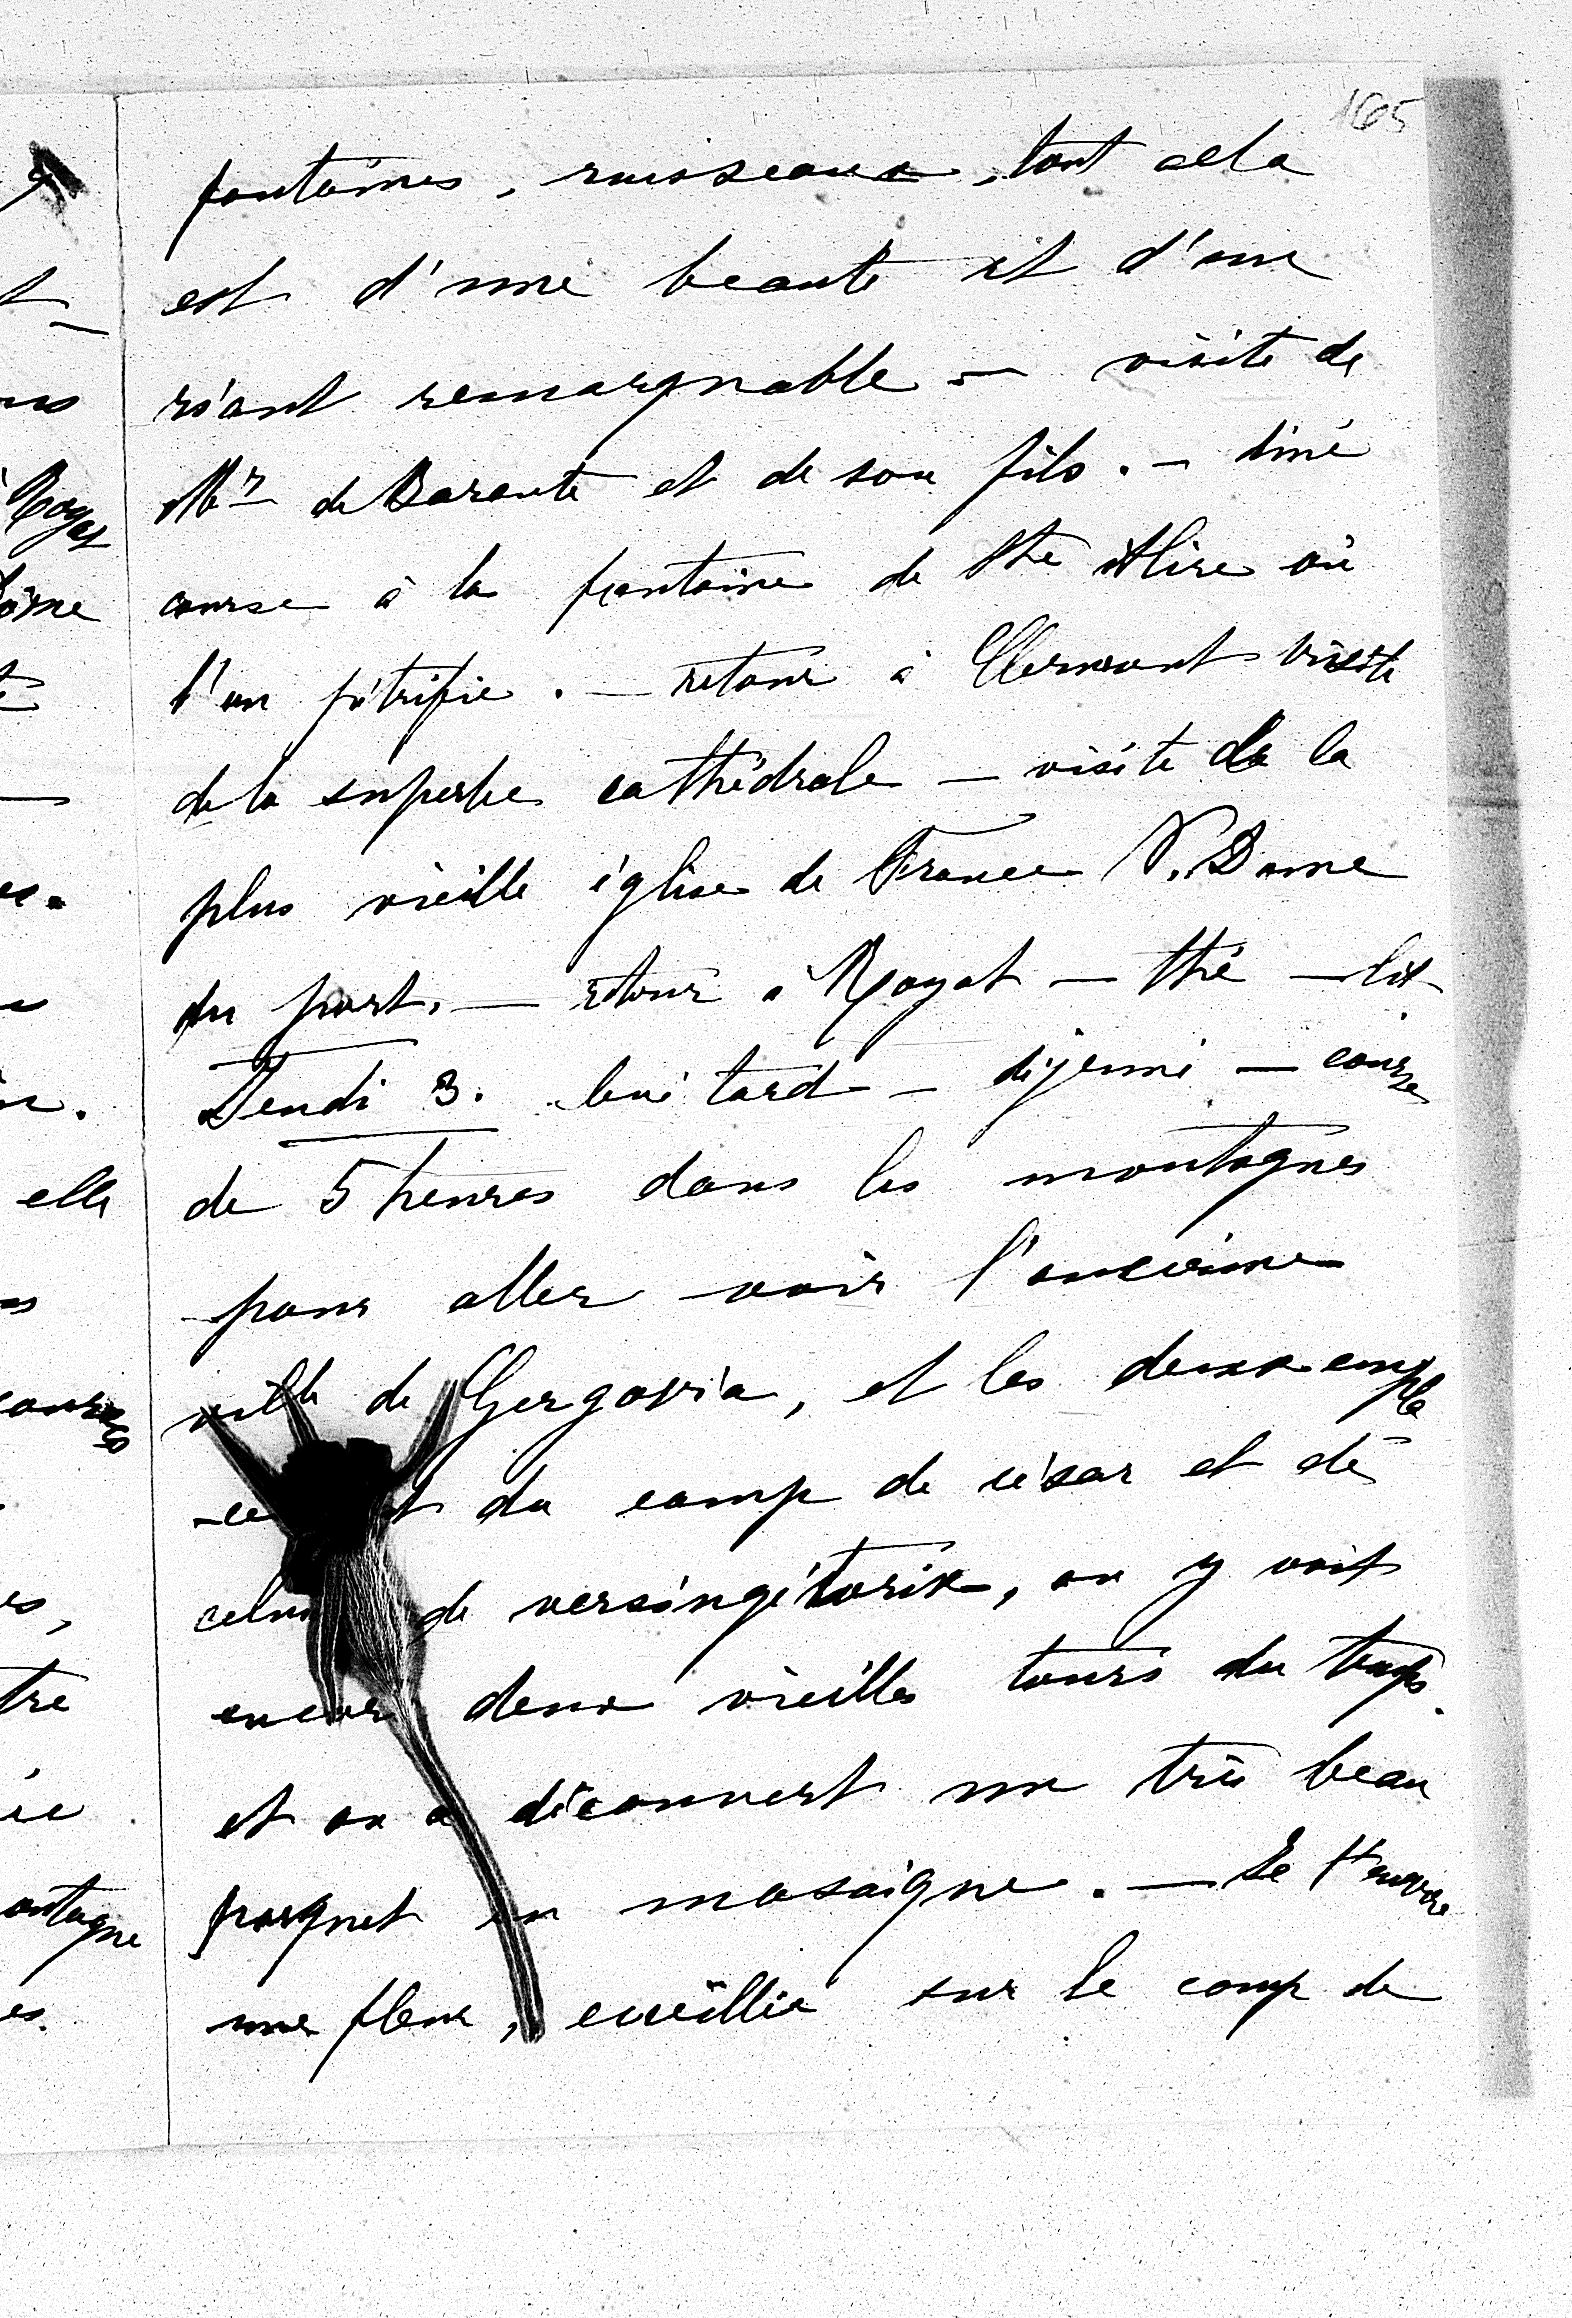 165
fontaines, ruisseaux, tout cela
est d'une beauté et d'un
riant remarquable — visite de
Mr de Barante et de son fils. — diné
course à la fontaine de Ste Allire où
l'on pétrifie. — retour à Clermont visite
de la superbe cathédrale — visite de la
plus vieille église de France N. Dame
du port. — retour à Royat — thé — lit
Jeudi 3. levé tard — déjeuné — course
de 5 heures dans les montagnes
pour aller voir l'ancienne
ville de Gergovia, et les deux empla
du camp de césar et de
celui de versingétorix, on y voit
encore deux vieilles tours du temps.
et on a découvert un très beau
parquet en mosaique. — Je
une fleur, cueillie sur le camp de